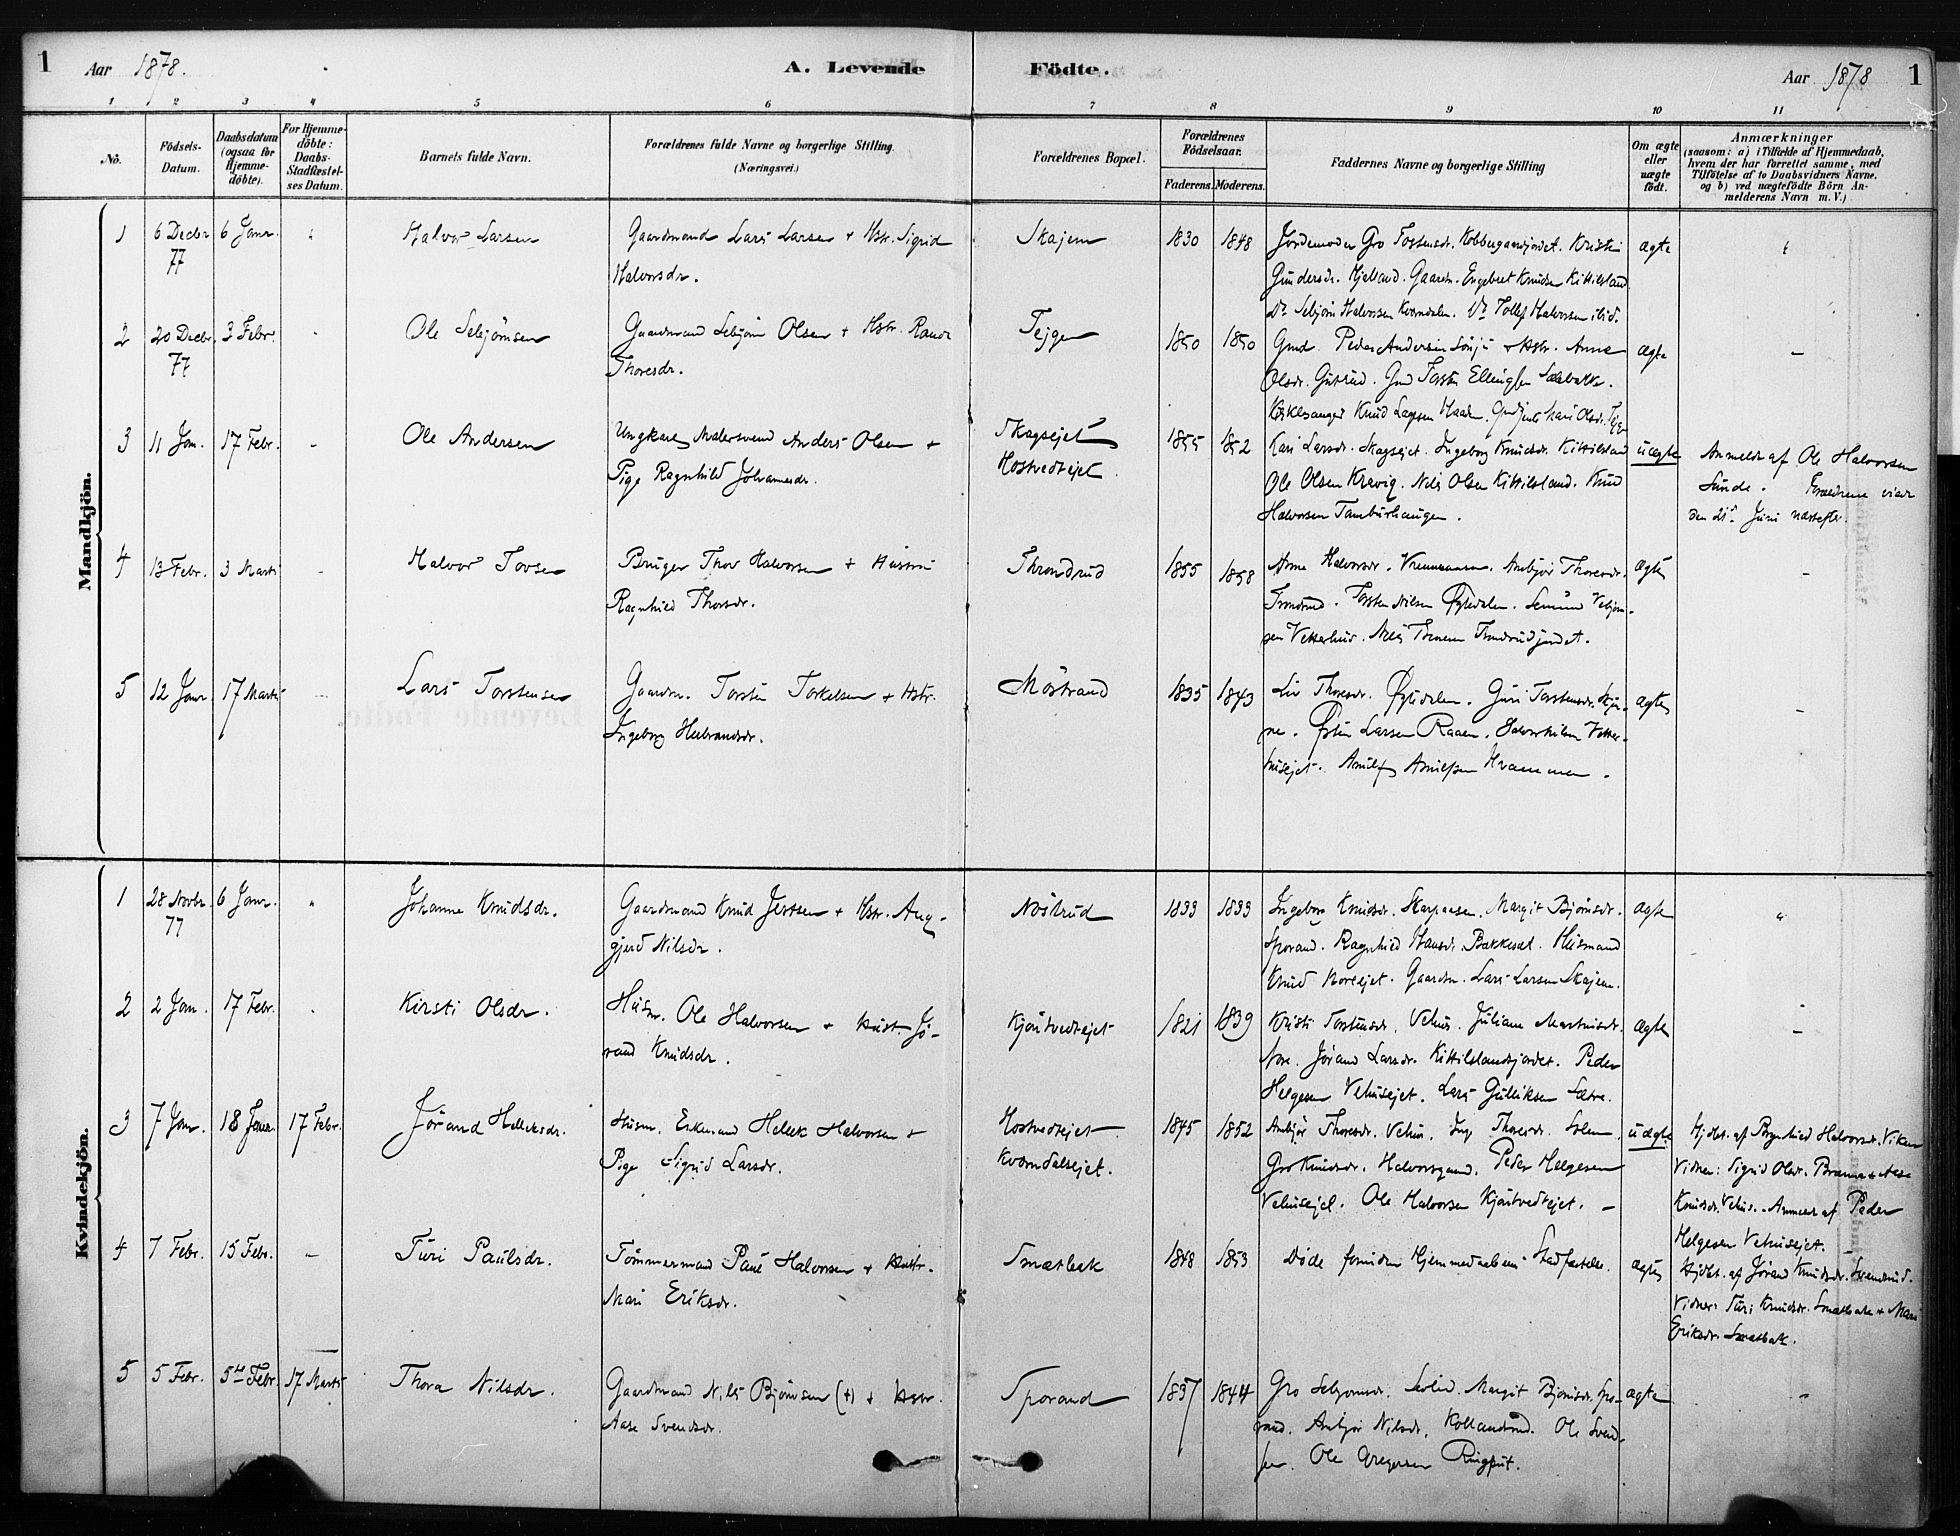 1 Aar 1878. A. Levende Födte. Aar 1878 1
1 2 3 4 5 6 7 8 9 10 11
No.
Födsels-
Datum.
Daabsdatum
(ogsaa for
Hjemme-
döbte).
For Hjemme-
döbte:
Daabs-
Stadfæstel-
ses Datum.
Barnets fulde Navn.
Forældrenes fulde Navne og borgerlige Stilling.
(Næringsvei.)
Forældrenes Bopæl.
Forældrenes
Födselsaar.
Faderens. Moderens.
Faddernes Navne og borgerlige Stilling
Om ægte
eller
uægte
födt.
Anmærkninger
(saasom: a) i Tilfælde af Hjemmedaab,
hvem der har forrettet samme, med
Tilföielse af to Daabsvidners Navne.
og b) ved uægtefödte Börn An-
melderens Navn m. V.)
Mandkjön.
1 6 Decbr 77 6 Janr. Halvor Larsen
Gaardmand Lars Larsen + Hstr. Sigrid
Halvorsdr.
Skajem 1830 1848
Jordemoder Gro Torstensdr. Kristi
Gundersdr. Gaardm. Engebret Knudsen Kittilsland
Do Sebjörn Halvorsen Kverndalen. Do Tollef Halvorsen ibid.
ægte
2 20 Decbr. 77 3 Febr. Ole Sebjörnsen
Gaardmand Sebjörn Olsen + Hstr. Randi
Thoresdr.
Tejgen 1850 1850
Gmd. Peder Andersen + Hstr. Anne
Olsdr. Gmd Torsten Ellingsen
Kirkesanger Knud Larsen
ægte
3 11 Jan. 17 Febr. Ole Andersen
Ungkarl Malersvend Anders Olsen +
Pige Ragnhild Johannesdr.
Skagsejet
Hostvedtejet
1855 1852
Kari Larsdr. Skagsejet. Ingeborg Knudsdr. Kittilsland
Ole Olsen Kravig. Nils Olsen Kittilsland. Knud
Halvorsen Tamburhaugen.
uægte
Anmeldt af Ole Halvorsen
Sunde. Forældrene viede
den 21de Juni næstefter.
4 13 Febr. 3 Marts Halvor Tovsen
Bruger Thov Halvorsen + Hustru
Ragnhild Thorsdr.
Throndrud 1855 1858
Anne Halvorsdr. Anbjör Thoresdr.
Torsten Nilsen Øygdalen.
sen Vetterhus. Nils
ægte
5 12 Janr. 17 Marts Lars Torstensen
Gaardm. Torsten Torkelsen + Hstr.
Ingeborg Helbrandsdr.
Möstrand 1835 1843
Liv Thoresdr. Øygdalen. Guri Torstensdr.
ne. Østen Larsen Raaen. Halvor Nilsen Vetter-
husejet.
ægte
Kvindekjön.
1 28 Novbr. 77 6 Janr. Johanne Knudsdr.
Gaardmand Knud Jertsen + Hstr. Aug-
gjerd Nilsdr.
Nöstrud 1833 1833
Ingeborg Knudsdr. Margit Björnsdr.
Sporand. Ragnhild Hansdr. Bakkesæt. Husmand
Knud Noreejet. Gaardm. Lars Larsen Skajem.
ægte
2 2 Jan. 17 Febr. Kirsti Olsdr.
Husm. Ole Halvorsen + Hust. Jö-
rand Knudsdr.
Kjöntvedtejet 1821 1839
Kristi Torstensdr. Vehus. Juliane Martinsdr.
Nore. Jörand Larsdr. Kittilslandsjordet. Peder
Helgesen Vehusejet. Lars Gulliksen Sætre.
ægte
3 7 Janr. 18 Janr. 17 Febr. Jörand Helleksdr.
Husm. Enkemand Hellek Halvorsen +
Pige Sigrid Larsdr.
Hostvedtejet
Kverndalsejet.
1845 1852
Anbjör Thoresdr. Vehus. Ing. Thoresdr.
Gro Knudsdr. Halvorsgaard. Peder Helgesen
Vehusejet. Ole Halvorsen Kjöntvedtejet.
uægte
Hjdbt. af Ragnhild Halvorsdr. Viken
Vidner: Sigrid Olsdr. + Aase
Knudsdr. Vehus. Anmeldt af Peder
Helgesen Vehusejet.
4 7 Febr. 15 Febr. Turi Paulsdr.
Tömmermand Paul Halvorsen + Hustr.
Mari Eriksdr.
Smætbak 1848 1853
Döde forinden Hjemmedaabens Stadfæstelse.
ægte
Hjdbt. af Jörand Knudsdr.
Vidner: Turi Knudsdr. Smætbak + Mari
Eriksdr. Smætbak.
5 5 Febr. 5te Febr. 17 Marts Thora Nilsdr.
Gaardmand Nils Björnsen (+) + Hstr.
Aase Svendsdr.
Sporand 1837 1844
Gro Sebjörnsdr. Margit Björnsdr. Spo-
rand. Anbjör Nilsdr. Kollandrud. Ole Svend-
sen. Ole Gregersen Ringput.
ægte